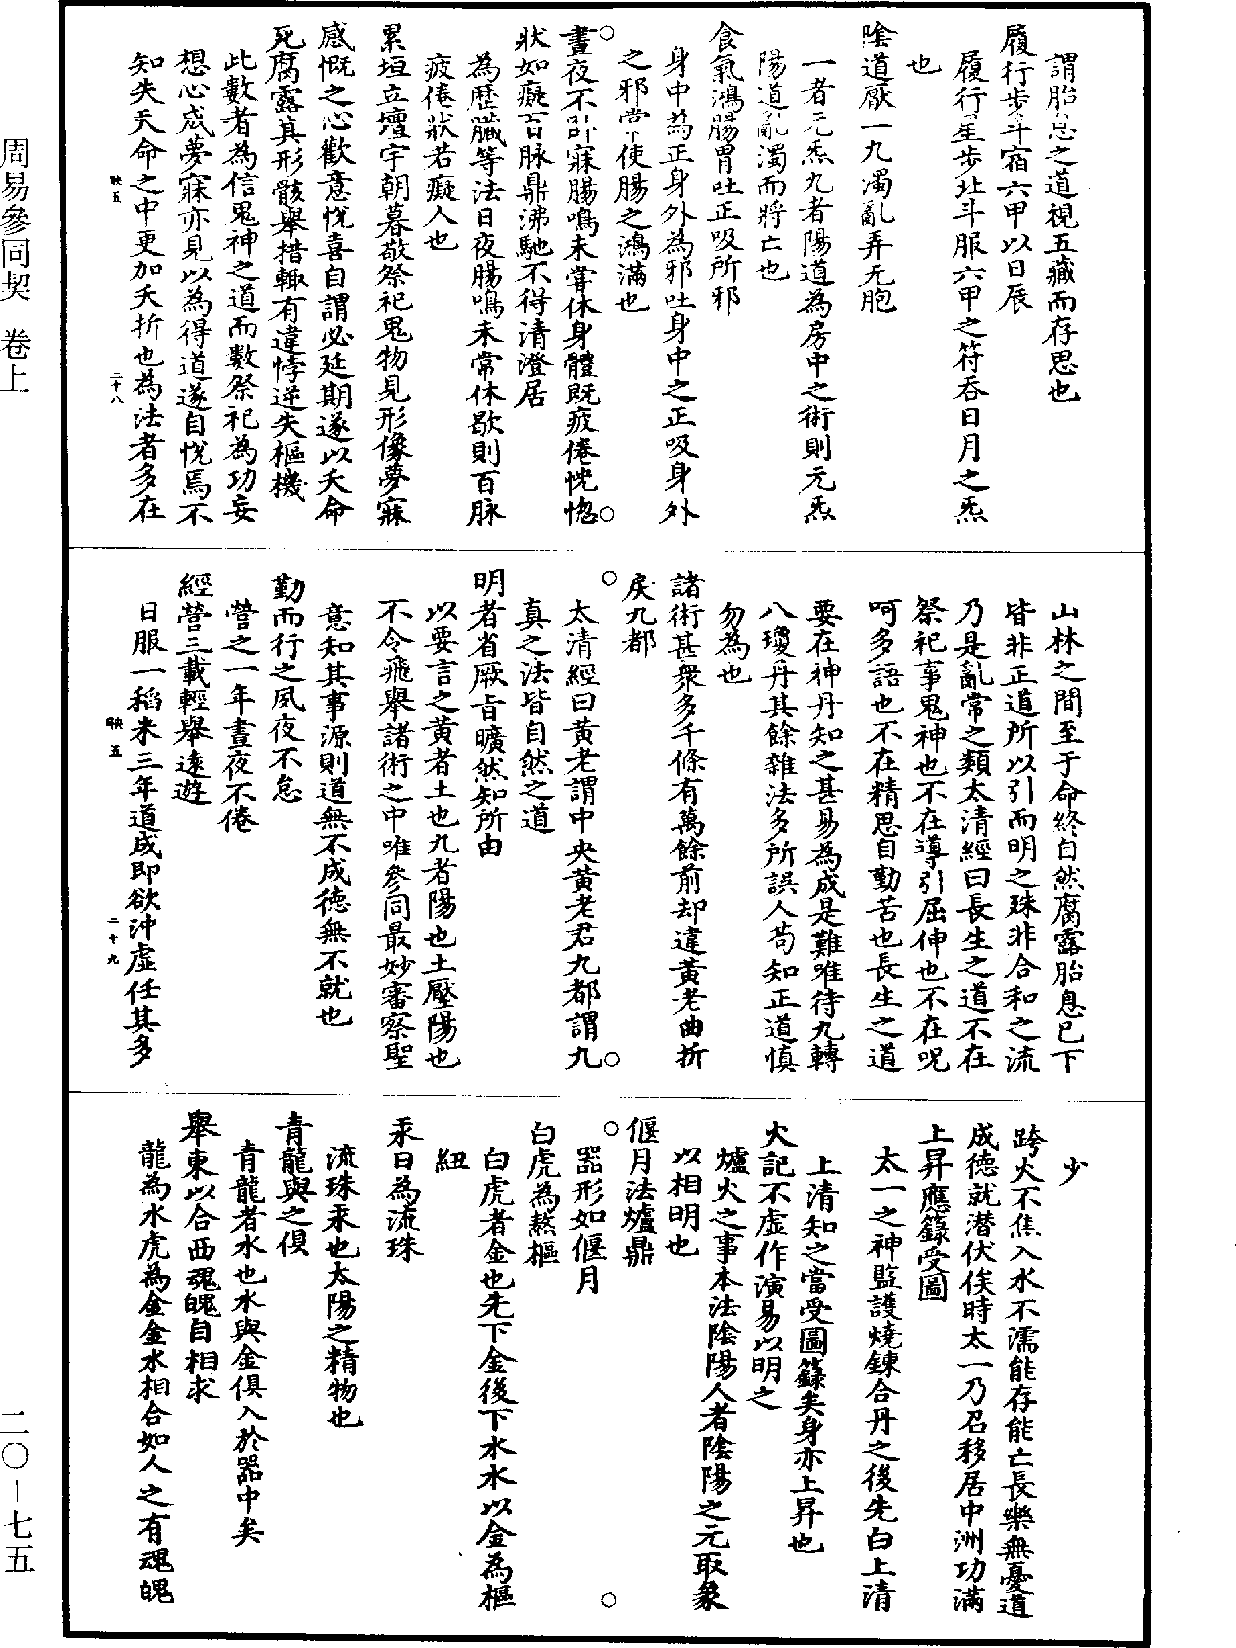 周易參同契　卷上
二〇－七五
謂胎息之道視五藏而存思也
履行步斗宿六甲以日辰
履行星步北斗服六甲之符吞日月之炁
也
陰道厭一九濁亂弄无胞
一者元炁九者陽道為房中之術則元炁
陽道亂濁而將亡也
食氣鴻腸胃吐正吸所邪
身中為正身外為邪吐身中之正吸身外
之邪常使腸之鴻滿也
晝夜不卧寐腸鳴未甞休身體既疲倦恍惚
狀如癡百脉鼎沸馳不得清澄居
為歷臟等法日夜腸鳴未常休歇則百脉
疲倦狀若癡人也
累垣立壇宇朝暮敬祭祀鬼物見形像夢寐
感慨之心歡意悅喜自謂必延期遂以夭命
死腐露其形骸舉措輙有違悖逆失樞機
此數者為信鬼神之道而數祭祀為功妄
想心成夢寐亦見以為得道遂自悅焉不
知失天命之中更加夭折也為法者多在
映五　二十八
山林之間至于命終自然腐露胎息已下
皆非正道所以引而明之殊非合和之流
乃是亂常之類太清經曰長生之道不在
祭祀事鬼神也不在導引屈伸也不在呪
呵多語也不在精思自勤苦也長生之道
要在神丹知之甚易為成是難唯待九轉
八瓊丹其餘雜法多所誤人苟知正道慎
勿為也
諸術甚衆多千條有萬餘前却違黃老曲折
戾九都
太清經曰黃老謂中央黃老君九都謂九
真之法皆自然之道
明者省厥旨曠然知所由
以要言之黃者土也九者陽也土壓陽也
不令飛舉諸術之中唯參同最妙審察聖
意知其事源則道無不成德無不就也
勤而行之夙夜不怠
營之一年晝夜不倦
經營三載輕舉遠遊
日服一稻米三年道成即欲沖虛任其多
映五　二十九
少
跨火不焦入水不濡能存能亡長樂無憂道
成德就潜伏俟時太一乃召移居中洲功滿
上昇應籙受圖
太一之神監護燒鍊合丹之後先白上清
上清知之當受圖籙矣身亦上昇也
火記不虛作演易以明之
爐火之事本法陰陽人者陰陽之元取象
以相明也
偃月法爐鼎
器形如偃月
白虎為熬樞
白虎者金也先下金後下水水以金為樞
紐
汞日為流珠
流珠汞也太陽之精物也
青龍與之俱
青龍者水也水與金俱入於器中矣
舉東以合西魂魄自相求
龍為水虎為金金水相合如人之有魂魄